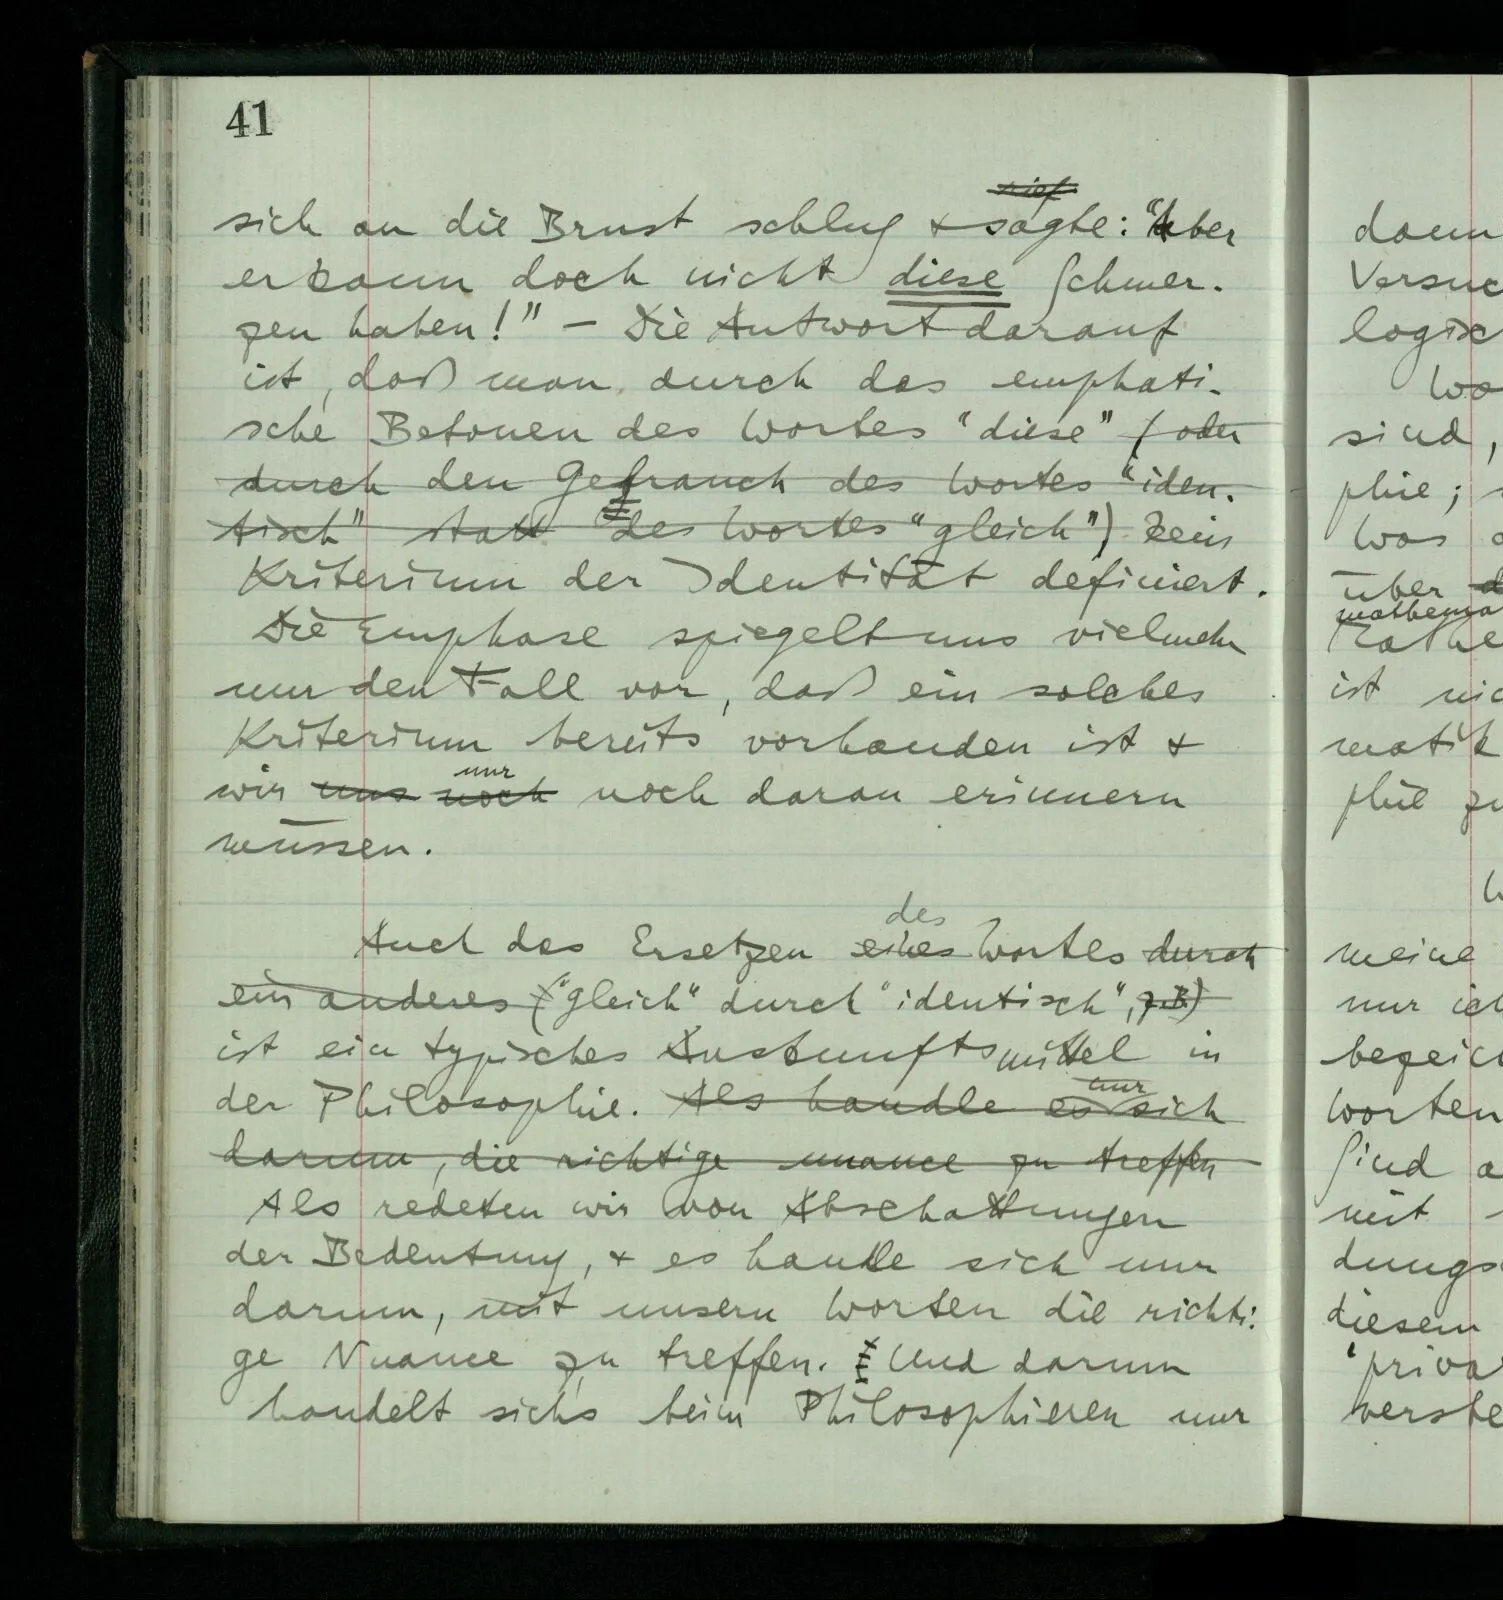 41
rief
sich an die Brust schlug & sagte: "Aber
er kann doch nicht diese Schmer-
zen haben!" — Die Antwort darauf
ist, daß man durch das emphati-
sche Betonen des Wortes "diese" (oder
durch den Gebrauch des Wortes "iden-
tisch" statt des Wortes "gleich") kein
Kriterium der Identität definiert.
Die Emphase spiegelt uns vielmehr
nur den Fall vor, daß ein solches
Kriterium bereits vorhanden ist &
nur
wir uns noch noch daran erinnern
müssen.
des
Auch das Ersetzen eines Wortes durch
ein anderes ("gleich" durch "identisch", z.B.)
ist ein typisches Auskunftsmittel in
der Philosophie. Als handle es sich
nur
darum, die richtige nuance zu treffen
Als redeten wir von Abschattungen
der Bedeutung, & es handle sich nur
darum, mit unsern Worten die richti-
ge Nuance zu treffen. Und darum
handelt sichs beim Philosophieren nur
dann
logisc
sind,
phie;
Was
über
ist nic
matik
phie zu
meine
nur ich
bezeic
Worten
Sind a
mit
dungs
diesem
"priva
verste